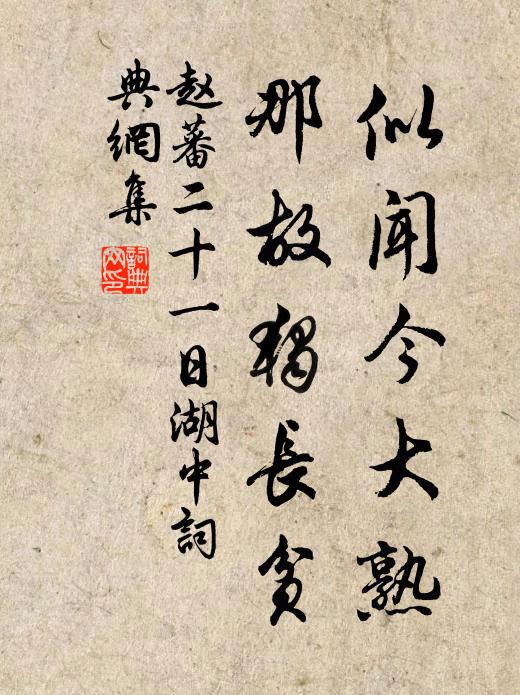 似闻今大熟
那故独長貧
赵蕃二十一日湖中詞
典網集
詞典
网印